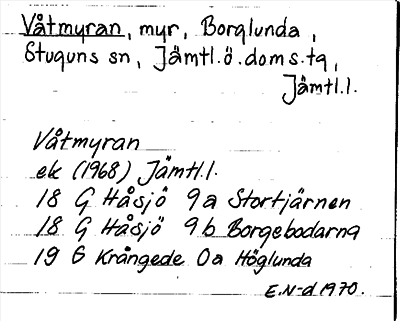 Våtmyran, myr, Borglunda,
Stuguns sn, Jämtl.ö.doms.tg,
Jämtl.l.
Våtmyran
ek (1968) Jämtl.l.
18 G Håsjö 9a Stortjärnen
18 G Håsjö 9b Borgebodarna
19 G Krångede 0a Höglunda
E.N-d 1970.